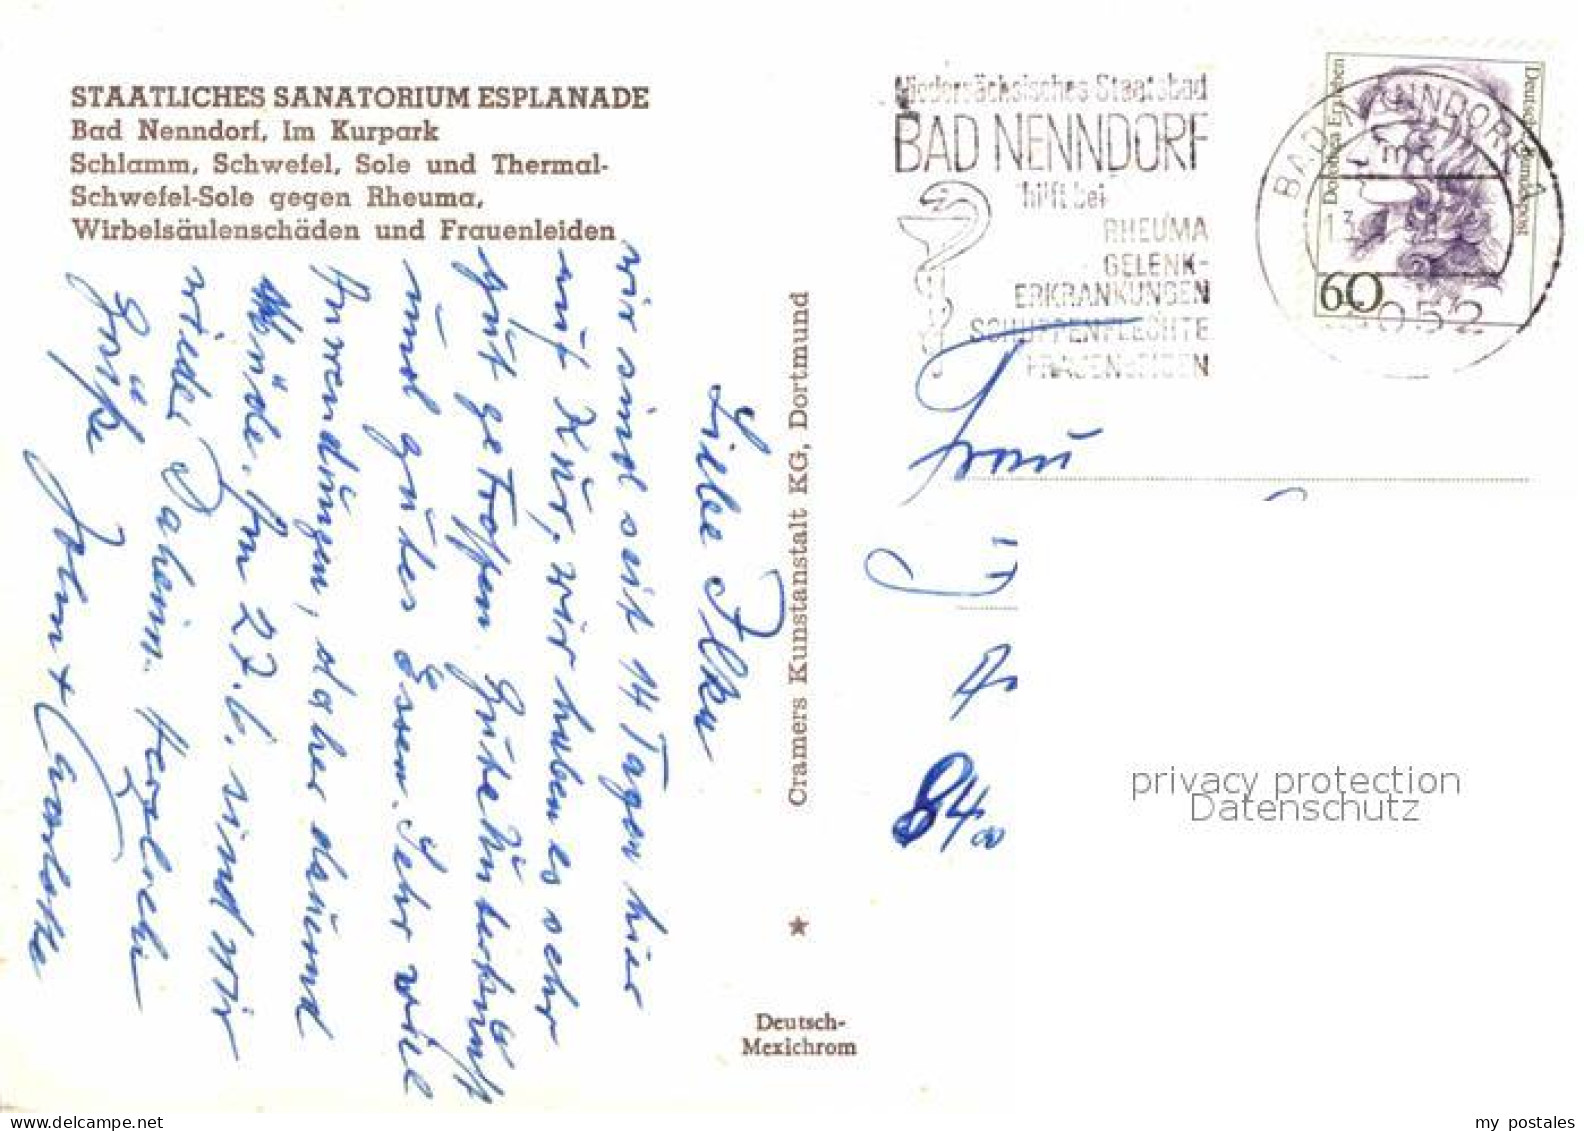 STAATLICHES SANATORIUM ESPLANADE
Bad Nenndorf, Im Kurpark
Schlamm, Schwefel, Sole und Thermal-
Schwefel-Sole gegen Rheuma,
Wirbelsäulenschäden und Frauenleiden
Liebe Ilka
wir sind seit 14 Tagen hier
auf Kur, wir haben es sehr
gut getroffen. Gute Unterkunft
und gutes Essen. Sehr viel
Anwendungen, daher dauernd
Müde. Am 27.6. sind wir
wieder Daheim. Herzliche
Grüße
Cramers Kunstanstalt KG, Dortmund
★
Deutsch-
Mexichrom
Niedersächsisches Staatsbad
BAD NENNDORF
hilft bei
RHEUMA
GELENK-
ERKRANKUNGEN
SCHUPPENFLECHTE
FRAUENLEIDEN
BAD NENNDORF
3052
Dorothea Erxleben
Deutsche Bundespost
60
Frau
84
privacy protection
Datenschutz
my postales